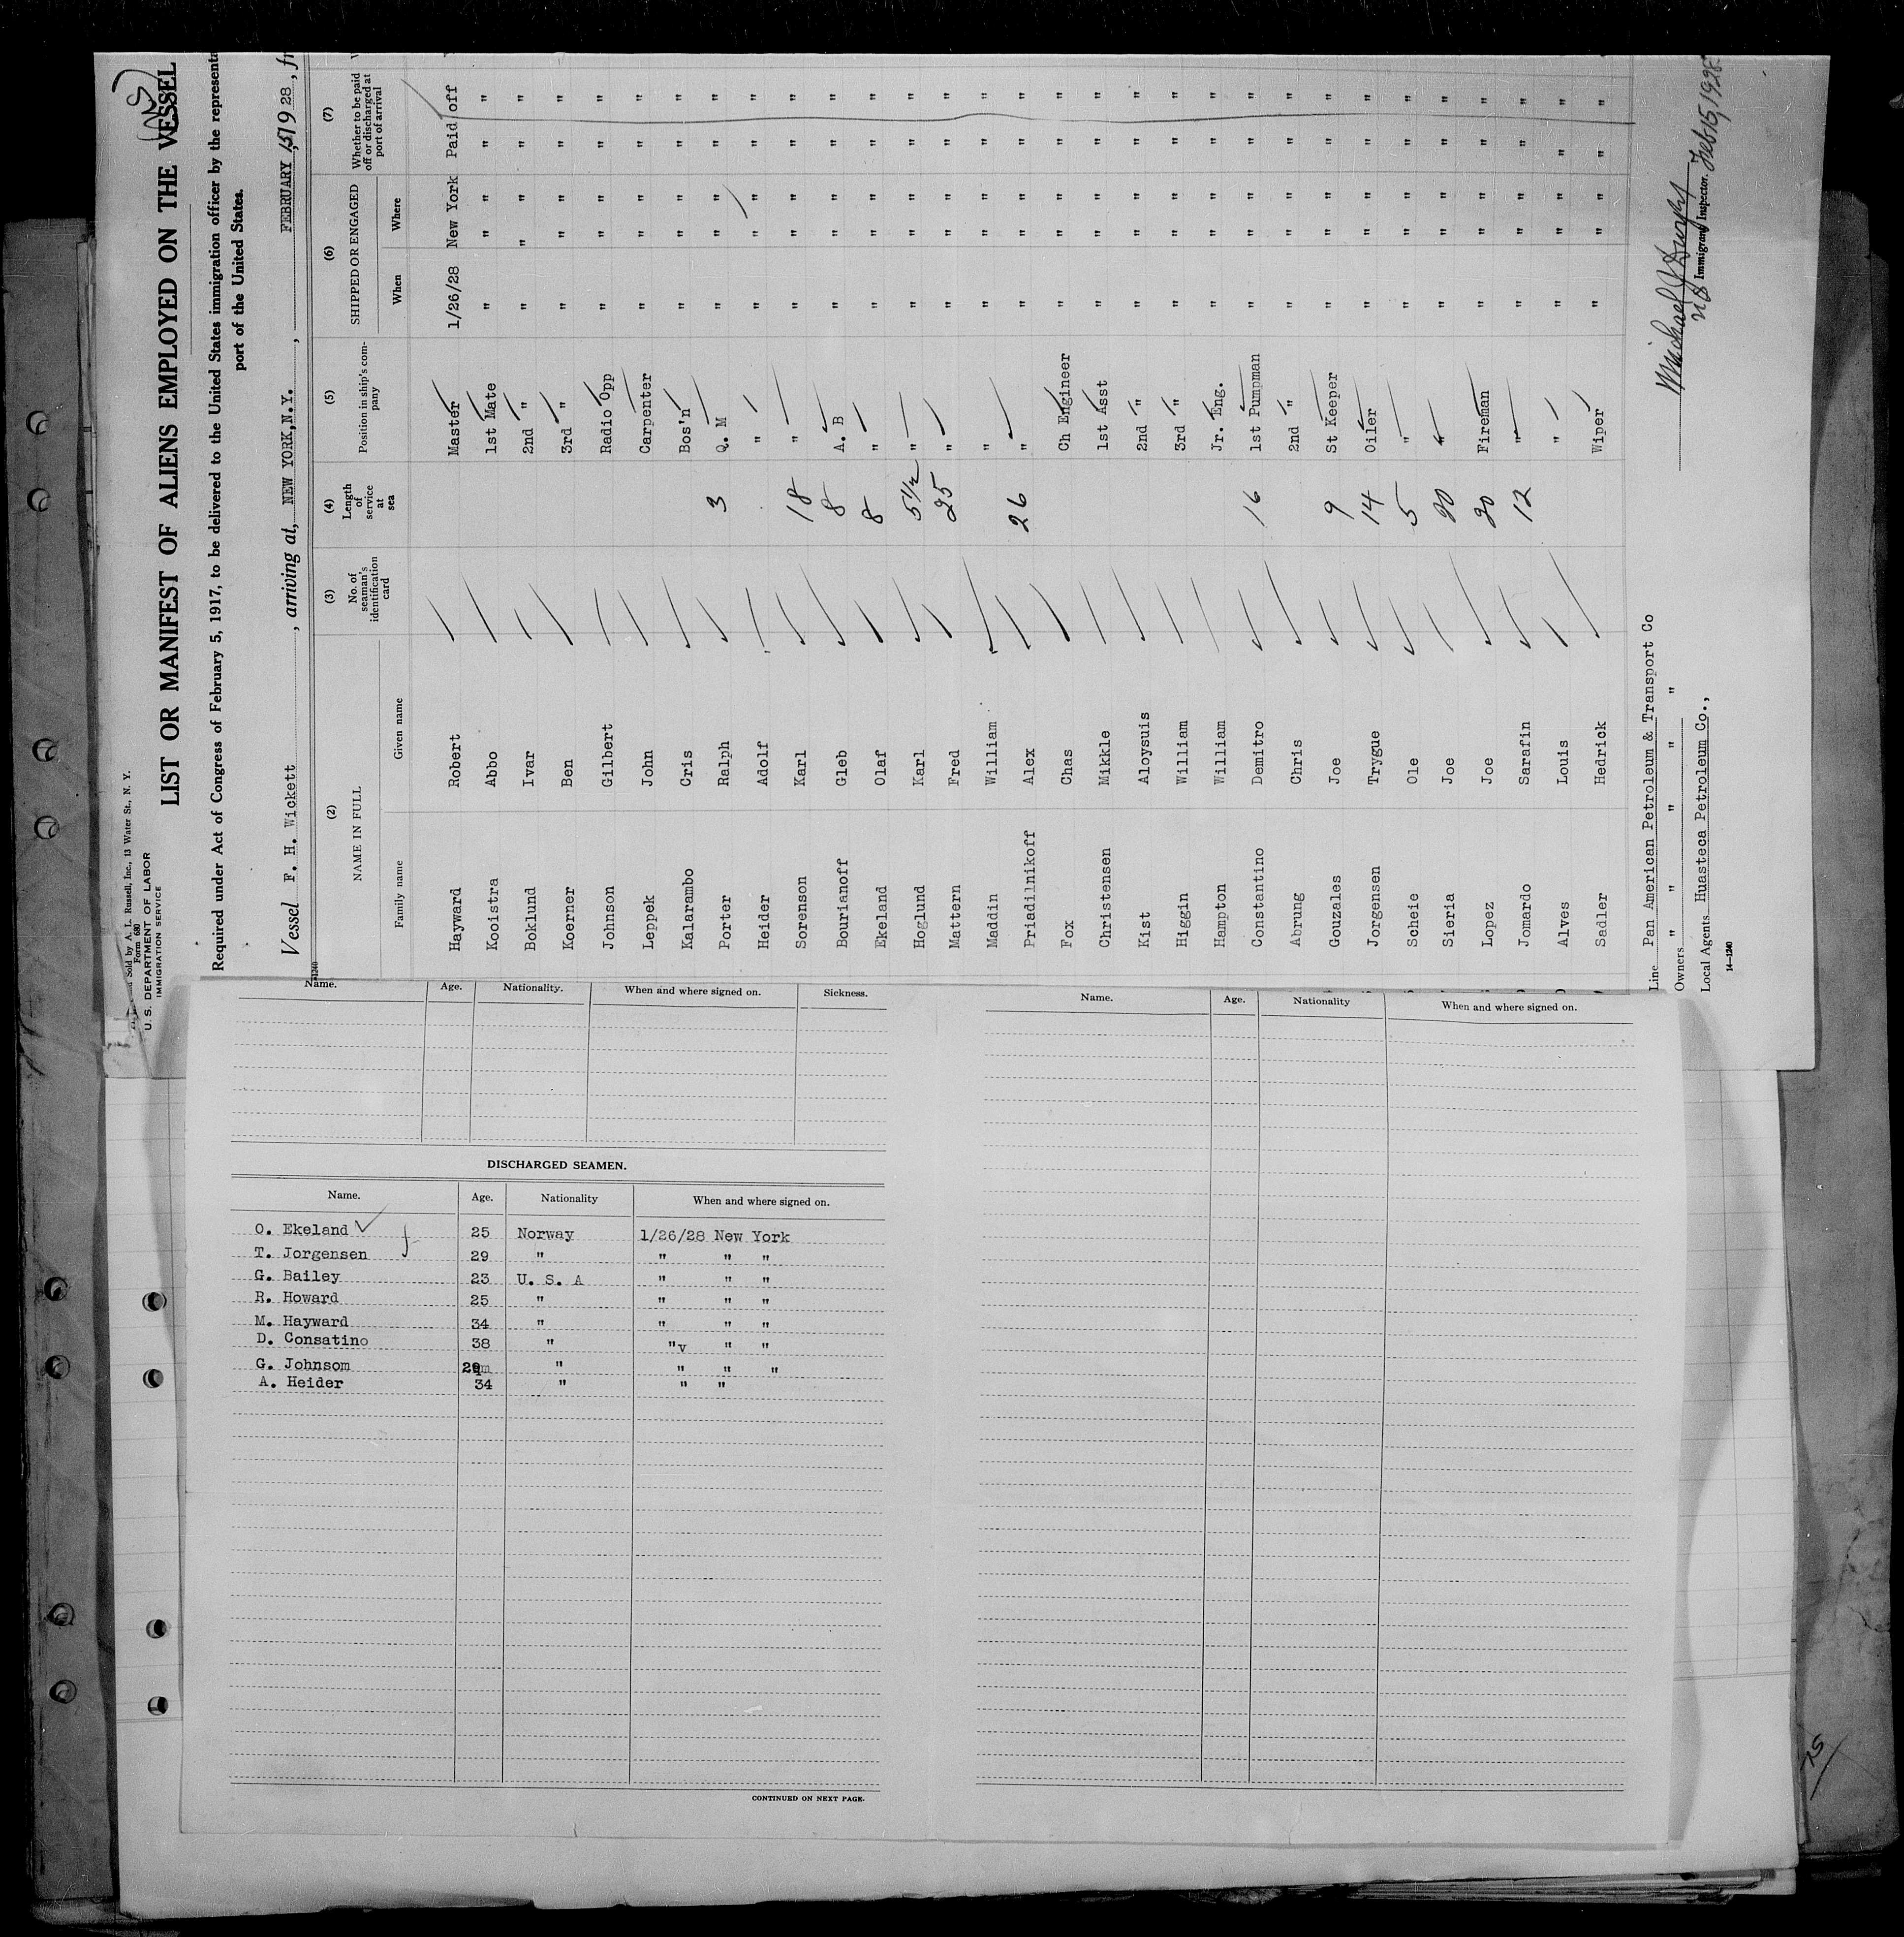 Sold by A. L. Russell, Inc., 13 Water St., N. Y.
Form 680
U. S. DEPARTMENT OF LABOR
IMMIGRATION SERVICE
LIST OR MANIFEST OF ALIENS EMPLOYED ON THE VESSEL
Required under Act of Congress of February 5, 1917, to be delivered to the United States immigration officer by the represent
port of the United States.
Vessel F. H. Wickett, arriving at, NEW YORK, N.Y., FEBRUARY 15, 1928, fr
(2) (3) (4) (5) (6) (7)
NAME IN FULL No. of seaman's identification card Length of service at sea Position in ship's company SHIPPED OR ENGAGED Whether to be paid off or discharged at port of arrival
Family name Given name When Where
Hayward Robert Master 1/26/28 New York Paid off
Kooistra Abbo 1st Mate " " " " "
Boklund Ivar 2nd " " " " " "
Koerner Ben 3rd " " " " " "
Johnson Gilbert Radio Opp " " " " "
Leppek John Carpenter " " " " "
Kalarambo Cris Bos'n " " " " "
Porter Ralph 3 Q. M " " " " "
Heider Adolf " " " " " "
Sorenson Karl 18 " " " " " "
Bourianoff Gleb 8 A. B " " " " "
Ekeland Olaf 8 " " " " " "
Hoglund Karl 5½ " " " " " "
Mattern Fred 25 " " " " " "
Maddin William " " " " " "
Priadilnikoff Alex 26 " " " " " "
Fox Chas Ch Engineer " " " " "
Christensen Mikkle 1st Asst " " " " "
Kist Aloysuis 2nd " " " " " "
Higgin William 3rd " " " " " "
Hampton William Jr. Eng. " " " " "
Constantino Demitro 16 1st Pumpman " " " " "
Abrung Chris 2nd " " " " " "
Gouzales Joe 9 St Keeper " " " " "
Jorgensen Trygue 14 Oiler " " " " "
Scheie Ole 5 " " " " " "
Sieria Joe 20 " " " " " "
Lopez Joe 20 Fireman " " " " "
Jomardo Sarafin 12 " " " " " "
Alves Louis " " " " " "
Sadler Hedrick Wiper " " " " "
Line Pan American Petroleum & Transport Co
Owners " " " " "
Local Agents Huasteca Petroleum Co.,
14-1240
Michael J Murphy
US Immigrant Inspector. Feb 15, 1928
Name. Age. Nationality. When and where signed on. Sickness.
DISCHARGED SEAMEN.
Name. Age. Nationality When and where signed on.
O. Ekeland 25 Norway 1/26/28 New York
T. Jorgensen 29 " " " "
G. Bailey 23 U. S. A " " "
R. Howard 25 " " " "
M. Hayward 34 " " " "
D. Consatino 38 " "v " "
G. Johnsom " " " "
A. Heider 34 " " "
CONTINUED ON NEXT PAGE.
Name. Age. Nationality When and where signed on.